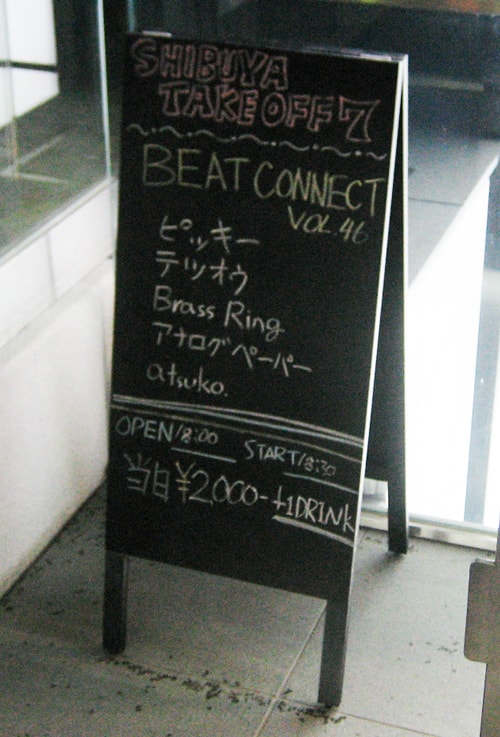 SHIBUYA
TAKE OFF 7
BEAT CONNECT
VOL.46
ピッキー
テツオウ
Brass Ring
アナログペーパー
atsuko.
OPEN/18:00 START/18:30
当日 ¥2,000- +1DRINK